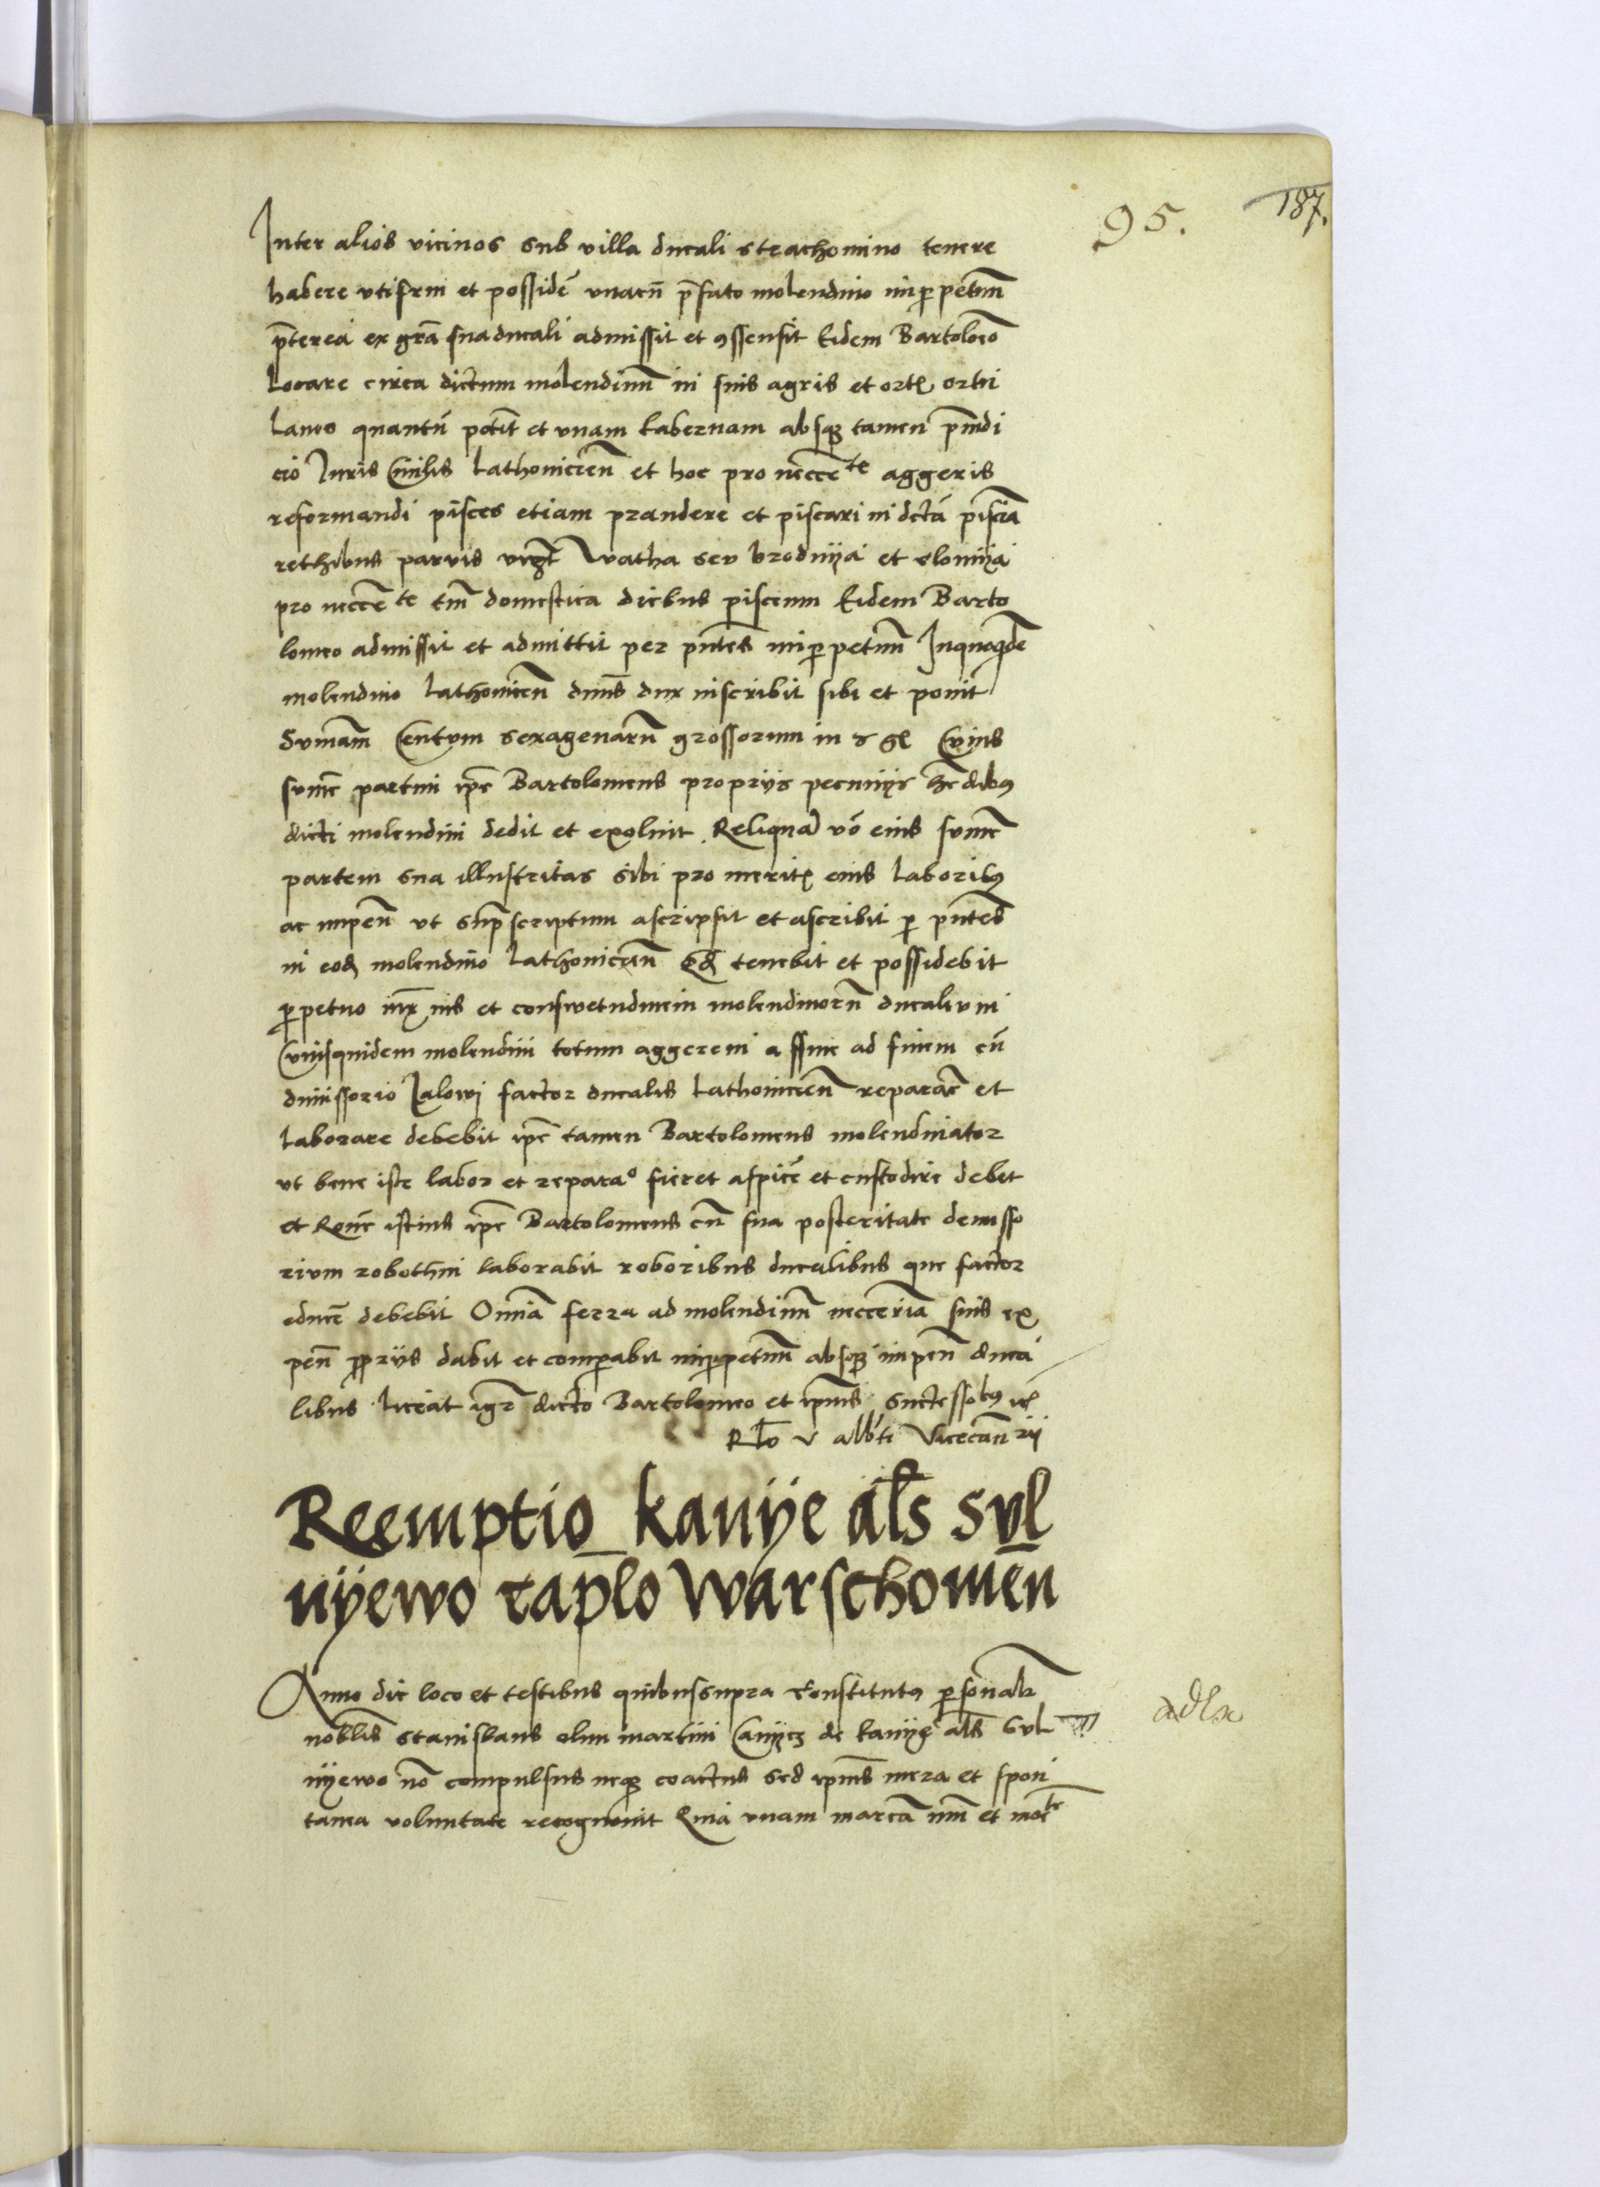 95.
187.
Inter alios vicinos sub villa ducali strachomino tenere
habere utifrui et possidē unacū p̄fato molendino inp̱petuū
p̄terea ex gr̄a sua ducali admissit et ꝯssensit Eidem Bartolomeo
Locare circa dictum molendinū in suis agris et ort
Laneo quantū potit et unam tabernam absqꝫ tamen p̄iudi
cio Iuris Civilis Lathoviciēn et hoc pro necceͭͤ aggeris
reformandi pisces etiam prandere et piscari in dctā pisciā
rethibus parvis vatha seu brodnya et clomya
pro necceͭͤ tm̄ domestica diebus piscium Eidem Barto
lomeo admissit et admittit per pn̄tes inp̱petuū In quoqdē
molendino Lathoviciēn dn̄us dux inscribit sibi et ponit
Sumam Centum sexagenarū grossorum in Cuius
sume partim ip̄e Bartolomeus proprys pecunys
dicti molendini dedit et exolvit Reliquā vō eius sume
partem sua illustritas sibi pro merit eius laboribꝰ
ac impen̄ ut sup̄scriptum ascripsit et ascribit p̱ pn̄tes
in eod molendino Lathoviciēn tenebit et possidebit
p̱petuo ius et conswetudinem molendinorū ducalium
Cuiusquidem molendini totum aggerem a fine ad finem cū
dimissorio Ialowi factor ducalis Lathoviciēn reparare et
Laborare debebit ip̄e tamen Bartolomeus molendinator
ut bene iste labor et reparaͦ fieret aspicē et custodire debet
et istius ip̄e Bartolomeus cū sua posteritate demisso
rium robothni laborabit roboribus ducalibus que factor
educē debebit Omīa ferra ad molendinū necceria suis ex
pen̄ prys dabit et comparabit inp̱petuū absqꝫ impen̄ duca
libus liceat igr̄ dicto Bartolomeo et ip̄ius successoibꝰ
Rlō v alb̄ti Vicecan̄ rii
Reemptio kanye al̄s sul
nyewo capl̄o Warschowien̄
Anno die loco et testibus quibussupra Constitutꝰ p̱sonalr
nobl̄is Stanislaus olim martini Canycz de kanye al̄s Sul
nyewo nō compulsus neqꝫ coactus sed ip̄ius mera et spon
tanea voluntate recognovit Quia unam marcā nū et